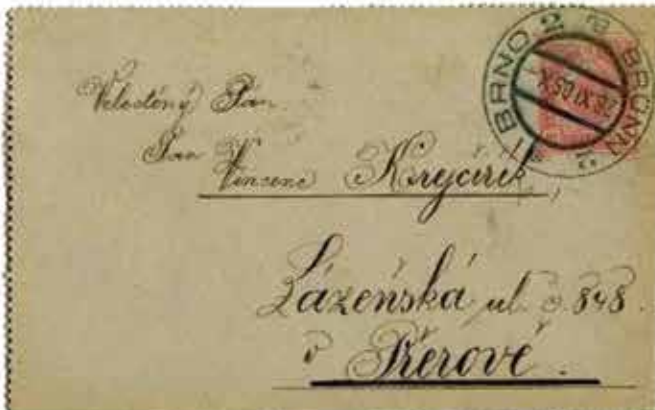 BRNO 2 BRÜNN
28.XI.05.X
Velectěný Pán
Pan
Vincenc Krejčiřík
Lázeňská ul. č. 848.
v Přerově.